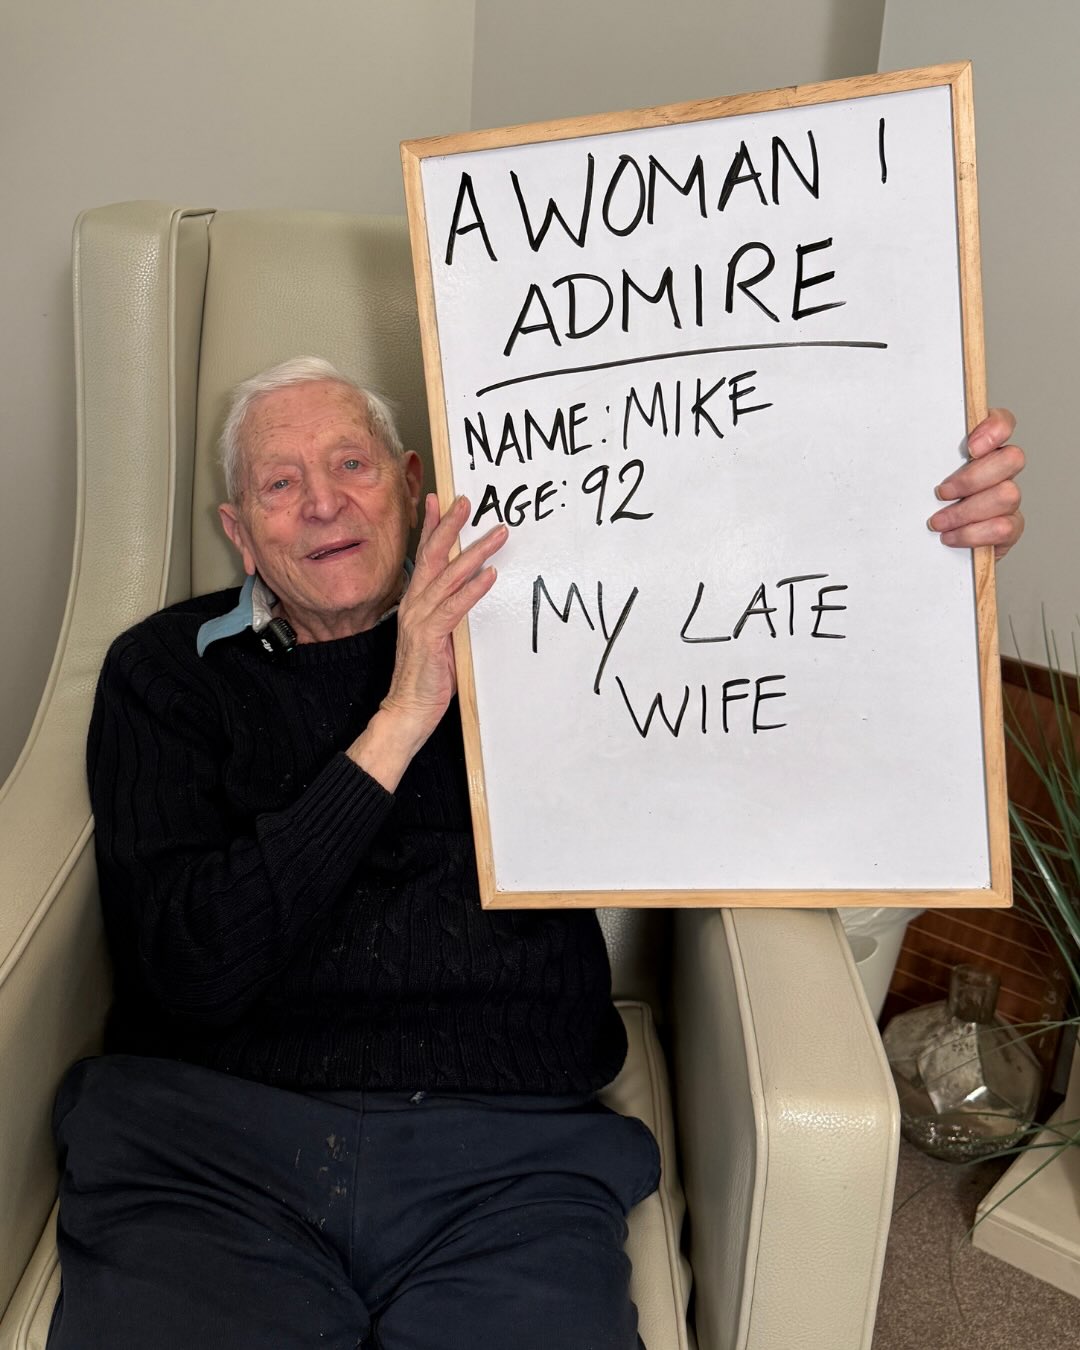 A WOMAN I
ADMIRE
NAME: MIKE
AGE: 92
MY LATE
WIFE
dji